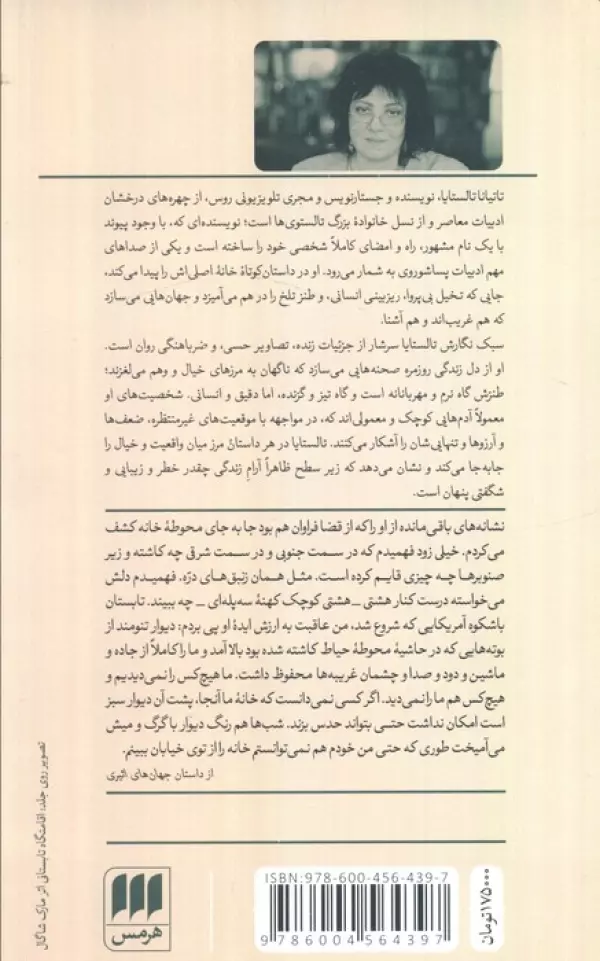 تاتیانا تالستایا، نویسنده و جستارنویس و مجری تلویزیونی روس، از چهره‌های درخشان
ادبیات معاصر و از نسل خانوادهٔ بزرگ تالستوی‌ها است؛ نویسنده‌ای که، با وجود پیوند
با یک نام مشهور، راه و امضای کاملاً شخصی خود را ساخته است و یکی از صداهای
مهم ادبیات پساشوروی به شمار می‌رود. او در داستان‌کوتاهْ خانهٔ اصلی‌اش را پیدا می‌کند،
جایی که تخیل بی‌پروا، ریزبینی انسانی، و طنز تلخ را در هم می‌آمیزد و جهان‌هایی می‌سازد
که هم غریب‌اند و هم آشنا.
سبک نگارش تالستایا سرشار از جزئیات زنده، تصاویر حسی، و ضرباهنگی روان است.
او از دل زندگی روزمره صحنه‌هایی می‌سازد که ناگهان به مرزهای خیال و وهم می‌لغزند؛
طنزش گاه نرم و مهربانانه است و گاه تیز و گزنده، اما دقیق و انسانی. شخصیت‌های او
معمولاً آدم‌هایی کوچک و معمولی‌اند که، در مواجهه با موقعیت‌های غیرمنتظره، ضعف‌ها
و آرزوها و تنهایی‌شان را آشکار می‌کنند. تالستایا در هر داستانْ مرز میان واقعیت و خیال را
جابه‌جا می‌کند و نشان می‌دهد که زیر سطح ظاهراً آرامِ زندگی چقدر خطر و زیبایی و
شگفتی پنهان است.
نشانه‌های باقی‌مانده از او را که از قضا فراوان هم بود جا به جای محوطهٔ خانه کشف
می‌کردم. خیلی زود فهمیدم که در سمت جنوبی و در سمت شرقی چه کاشته و زیر
صنوبرها چه چیزی قایم کرده است. مثل همان زنبق‌های درّه. فهمیدم دلش
می‌خواسته درست کنار هشتی _ هشتی کوچک کهنهٔ سه‌پله‌ای _ چه ببیند. تابستان
باشکوه آمریکایی که شروع شد، من عاقبت به ارزش ایدهٔ او پی بردم: دیوار تنومند از
بوته‌هایی که در حاشیهٔ محوطهٔ حیاط کاشته شده بود بالا آمد و ما را کاملاً از جاده و
ماشین و دود و صدا و چشمان غریبه‌ها محفوظ داشت. ما هیچ‌کس را نمی‌دیدیم و
هیچ‌کس هم ما را نمی‌دید. اگر کسی نمی‌دانست که خانهٔ ما آنجا، پشت آن دیوار سبز
است امکان نداشت حتی بتواند حدس بزند. شب‌ها هم رنگ دیوار با گرگ و میش
می‌آمیخت طوری که حتی من خودم هم نمی‌توانستم خانه را از توی خیابان ببینم.
از داستان جهان‌های اثیری
تصویر روی جلد: اقامتگاه تابستانی اثر مارک شاگال
هرمس
ISBN: 978-600-456-439-7
9 786004 564397
۱۷۵۰۰۰ تومان